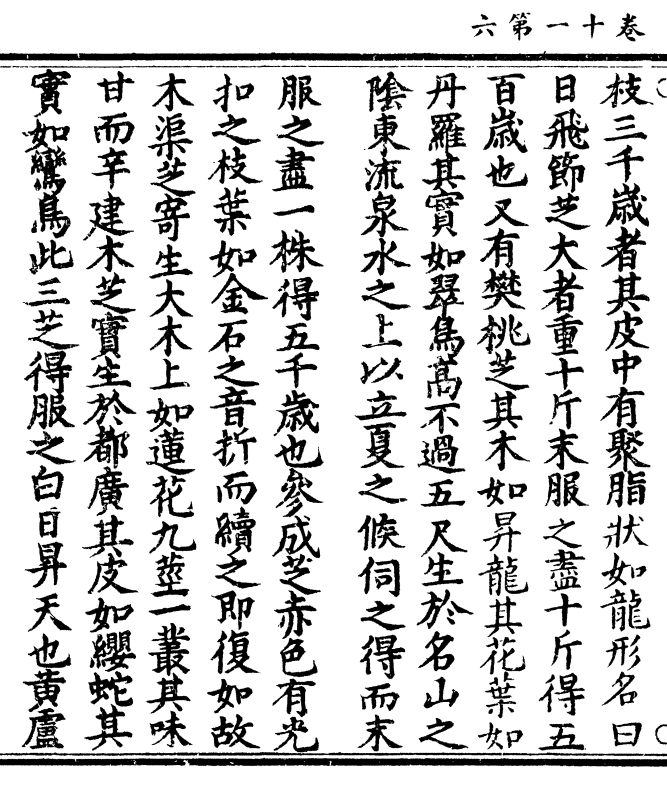 卷十一第六
枝三千歲者其皮中有聚脂狀如龍形名曰
日飛節芝大者重十斤末服之盡十斤得五
百歲也又有樊桃芝其木如昇龍其花葉如
丹羅其實如翠鳥高不過五尺生於名山之
陰東流泉水之上以立夏之候伺之得而末
服之盡一株得五千歲也參成芝赤色有光
扣之枝葉如金石之音折而續之即復如故
木渠芝寄生大木上如蓮花九莖一叢其味
甘而辛建木芝實生於都廣其皮如纓蛇其
實如鸞鳥此三芝得服之白日昇天也黃盧